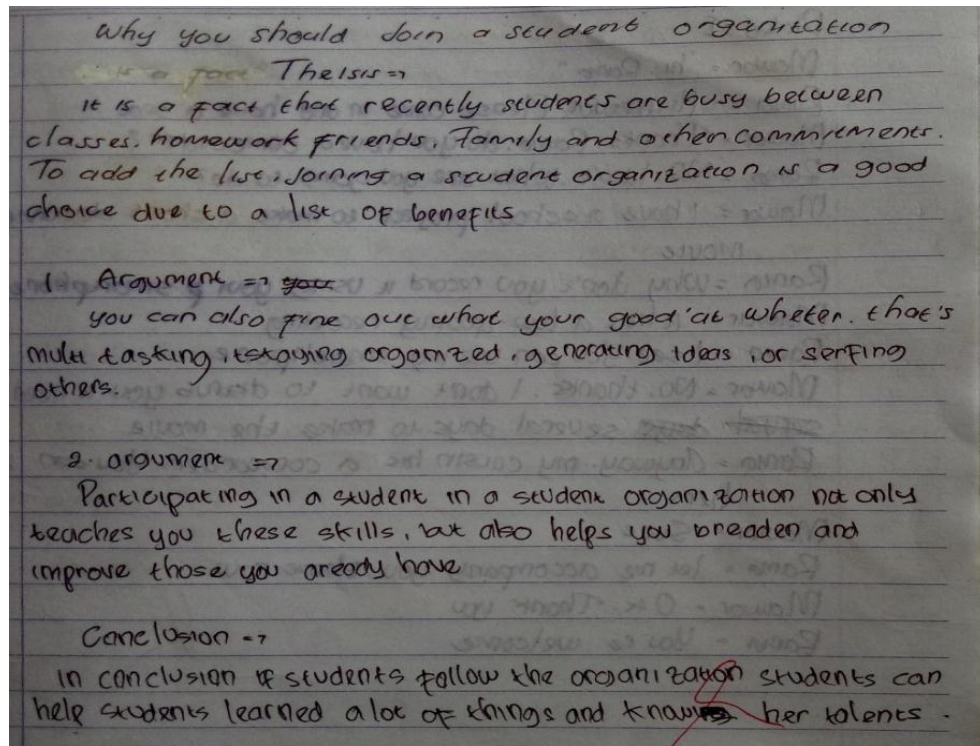 Why you should Join a student organitation
Thelsis =>
It is a fact that recently students are busy between
classes. homework friends, Family and other commitments.
To add the list, Joining a student organization is a good
choice due to a list of benefits
1. Argument => you
you can also fine out what your good at wheter. that's
multi tasking, tstaying orgomzed, generating ideas, or serfing
others.
2. argument =>
Participating in a student in a student organization not only
teaches you these skills, but also helps you breaden and
improve those you aready have
Conclusion =>
in conclusion if students follow the organization students can
help students learned a lot of things and know her talents.